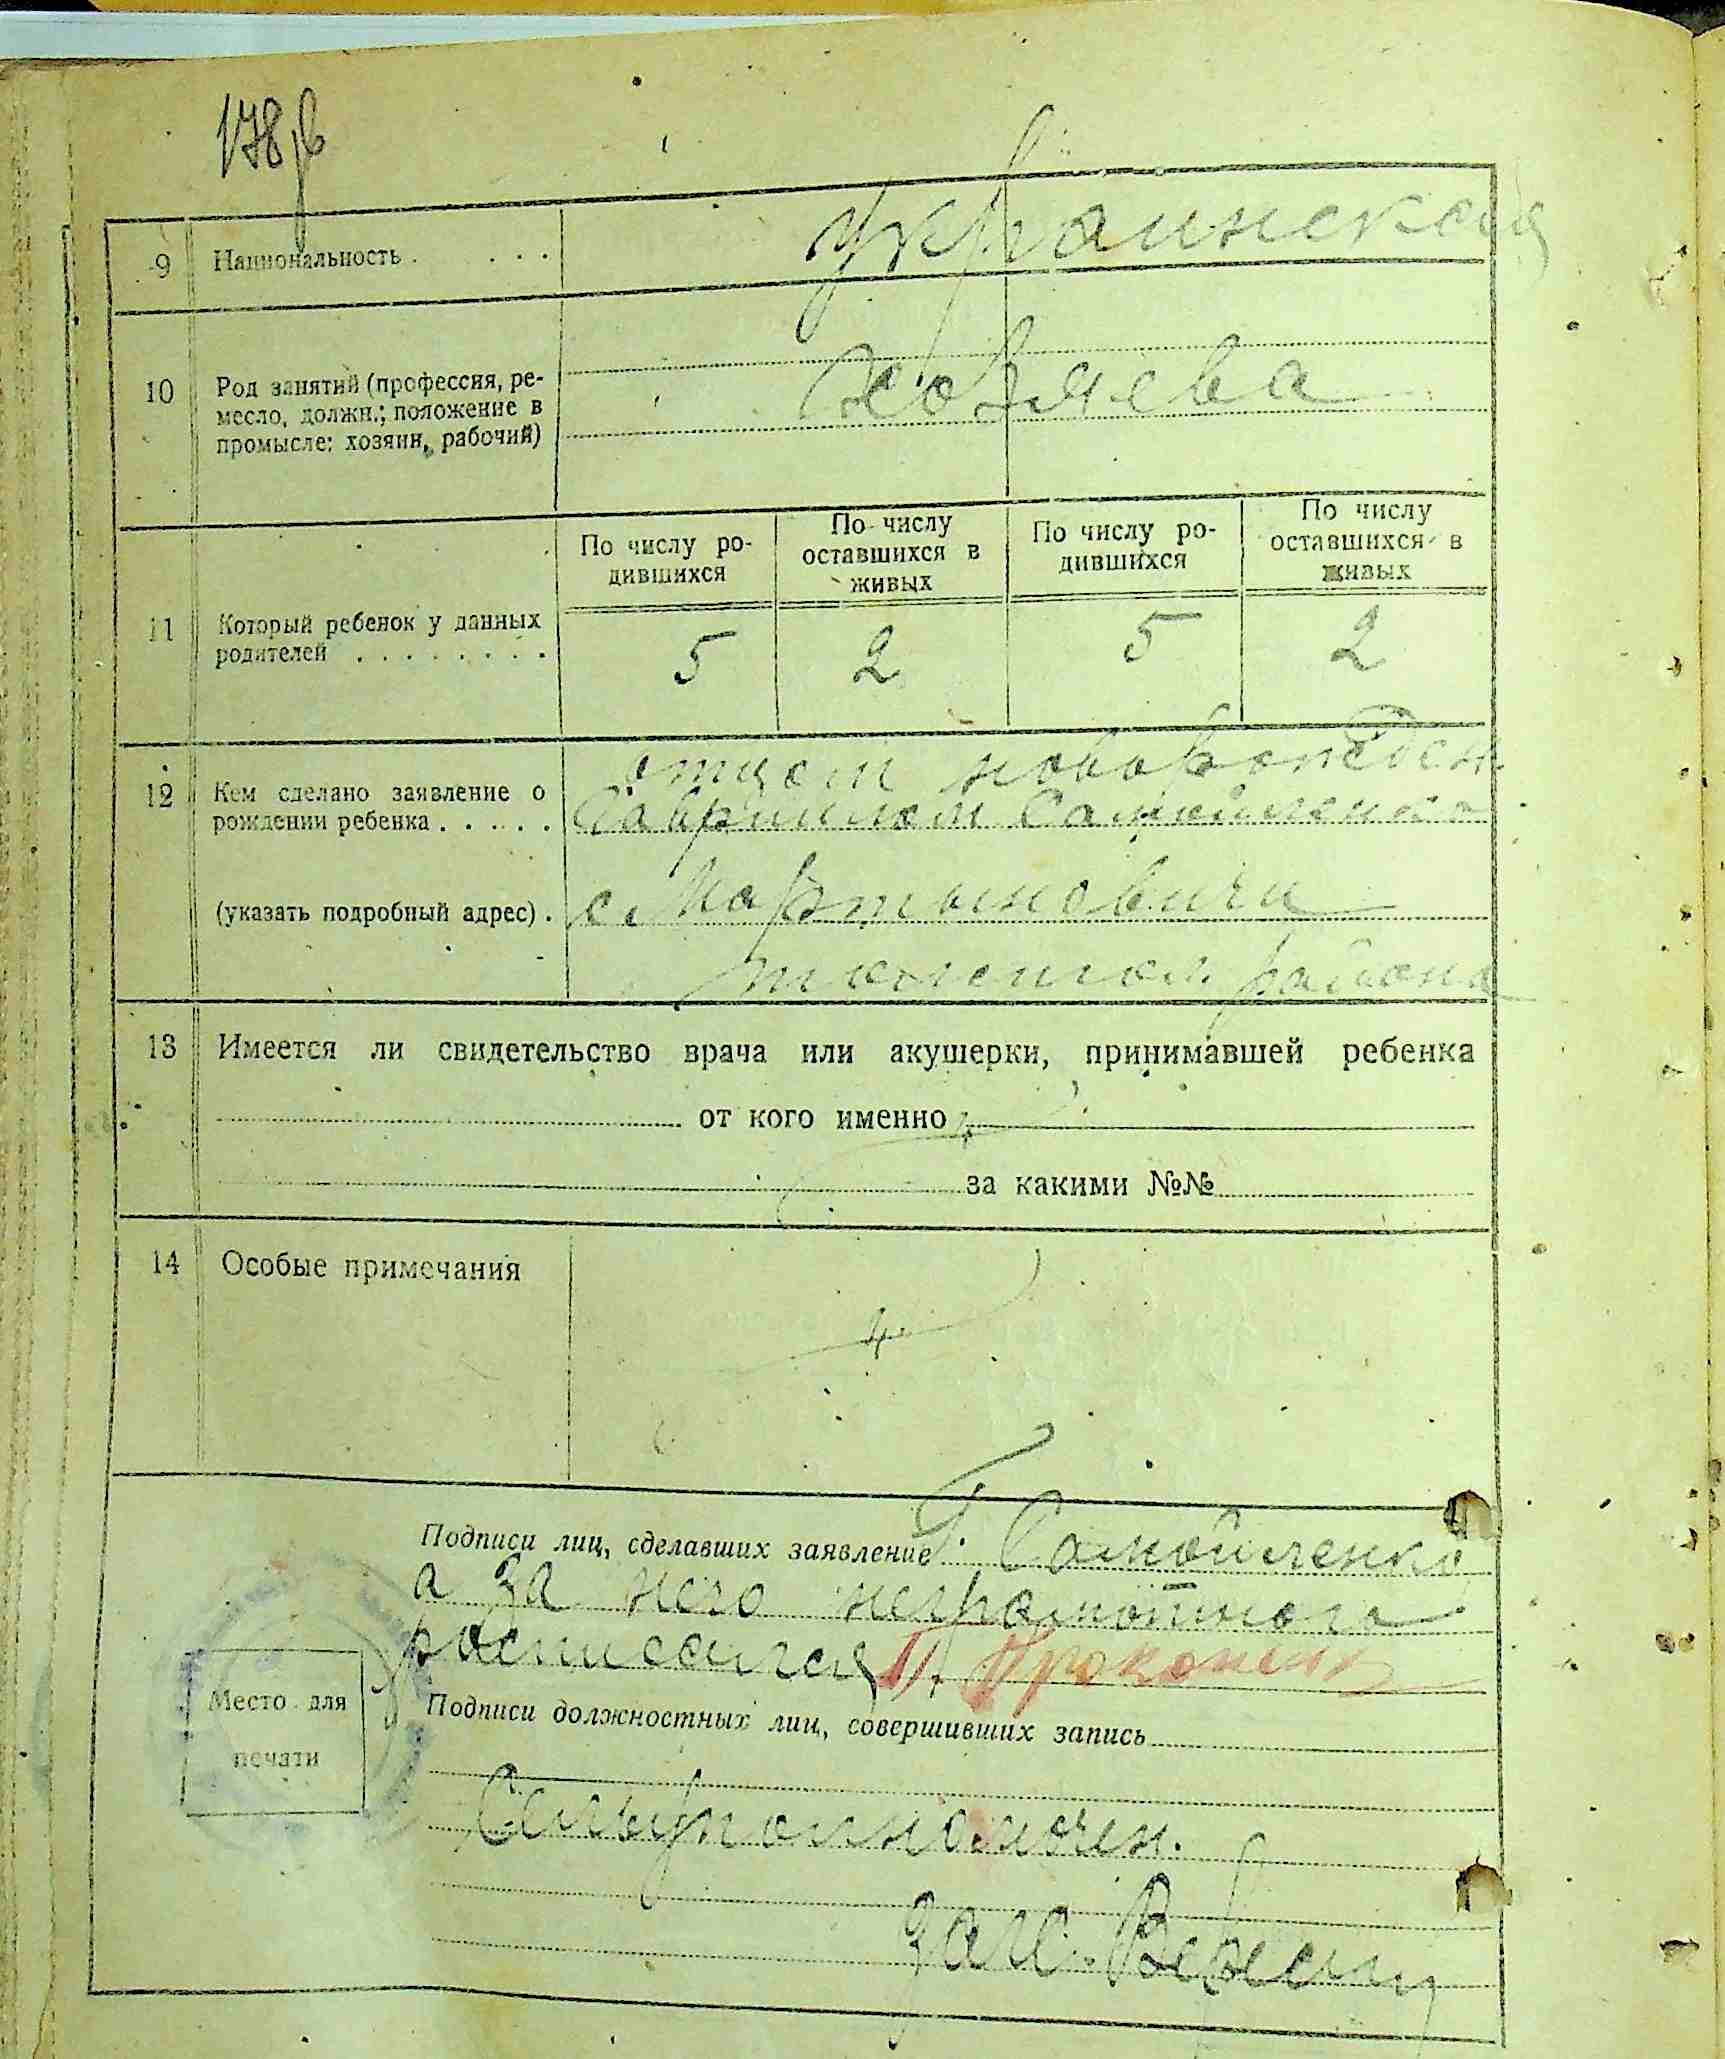 178 об
9 Национальность . . . . украинская
10 Род занятий (профессия, ре-
месло, должн.; положение в
промысле: хозяин, рабочий)
хозяева
По числу ро-
дившихся
По числу
оставшихся в
живых
По числу ро-
дившихся
По числу
оставшихся в
живых
11 Который ребенок у данных
родителей . . . . . . . .
5 2 5 2
12 Кем сделано заявление о
рождении ребенка . . . . .
отцом новорожден
Гаврилом Самойленко
(указать подробный адрес) . с. Мартыновичи
района
13 Имеется ли свидетельство врача или акушерки, принимавшей ребенка
от кого именно
за какими №№
14 Особые примечания
Подписи лиц, сделавших заявление Г. Самойленко
а за него неграмотного
росписался П. Прокопенко
Место для
печати
Подписи должностных лиц, совершивших запись
Сельуполномочен.
загс.